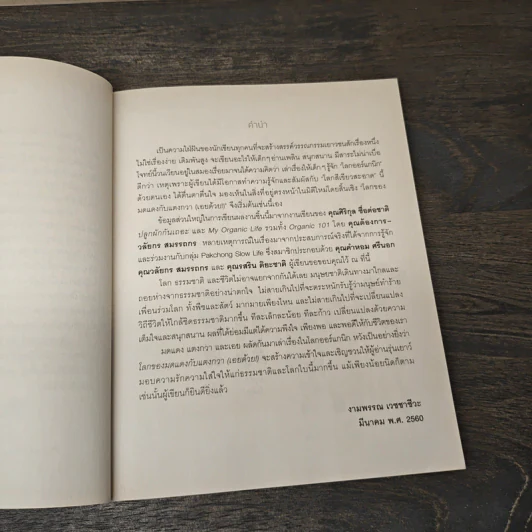 คำนำ
เป็นความใฝ่ฝันของนักเขียนทุกคนที่จะสร้างสรรค์วรรณกรรมเยาวชนสักเรื่องหนึ่ง
ไม่ใช่เรื่องง่าย เดิมพันสูง จะเขียนอะไรให้เด็กๆ อ่านเพลิน สนุกสนาน มีสาระไม่น่าเบื่อ
โจทย์นี้วนเวียนอยู่ในสมองเรื่อยมาจนได้ความคิดว่า เล่าเรื่องให้เด็กๆ รู้จัก 'โลกออร์แกนิก'
ดีกว่า เหตุเพราะผู้เขียนได้มีโอกาสทำความรู้จักและสัมผัสกับ 'โลกสีเขียวสะอาด' นี้
ด้วยตนเอง ได้ตื่นตาตื่นใจ มองเห็นในสิ่งที่อยู่ตรงหน้าในมิติใหม่โดยสิ้นเชิง 'โลกของ
มดแดงกับแตงกวา (เอยด้วย!)' จึงเริ่มต้นเช่นนี้เอง
ข้อมูลส่วนใหญ่ในการเขียนผลงานชิ้นนี้มาจากงานเขียนของ คุณศิริกุล ซื่อต่อชาติ
ปลูกผักกันเถอะ และ My Organic Life รวมทั้ง Organic 101 โดย คุณต้องการ–
วลัยกร สมรรถกร หลายเหตุการณ์ในเรื่องมาจากประสบการณ์จริงที่ได้จากการรู้จัก
และร่วมงานกับกลุ่ม Pakchong Slow Life ซึ่งสมาชิกประกอบด้วย คุณคำหอม ศรีนอก
คุณวลัยกร สมรรถกร และ คุณรสริน ติยะชาติ ผู้เขียนขอขอบคุณไว้ ณ ที่นี้
โลก ธรรมชาติ และชีวิตไม่อาจแยกจากกันได้เลย มนุษยชาติเดินทางมาไกลและ
ถอยห่างจากธรรมชาติอย่างน่าตกใจ ไม่สายเกินไปที่จะตระหนักรับรู้ว่ามนุษย์ทำร้าย
เพื่อนร่วมโลก ทั้งพืชและสัตว์ มากมายเพียงไหน และไม่สายเกินไปที่จะเปลี่ยนแปลง
วิถีชีวิตให้ใกล้ชิดธรรมชาติมากขึ้น ทีละเล็กละน้อย ทีละก้าว เปลี่ยนแปลงด้วยความ
เต็มใจและสนุกสนาน ผลที่ได้ย่อมมีแต่ได้ความพึงใจ เพียงพอ และพอดีให้กับชีวิตของเรา
มดแดง แตงกวา และเอย ผลัดกันมาเล่าเรื่องในโลกออร์แกนิก หวังเป็นอย่างยิ่งว่า
โลกของมดแดงกับแตงกวา (เอยด้วย!) จะสร้างความเข้าใจและเชิญชวนให้ผู้อ่านรุ่นเยาว์
มอบความรักความใส่ใจให้แก่ธรรมชาติและโลกใบนี้มากขึ้น แม้เพียงน้อยนิดก็ตาม
เช่นนั้นผู้เขียนก็ยินดียิ่งแล้ว
งามพรรณ เวชชาชีวะ
มีนาคม พ.ศ. 2560